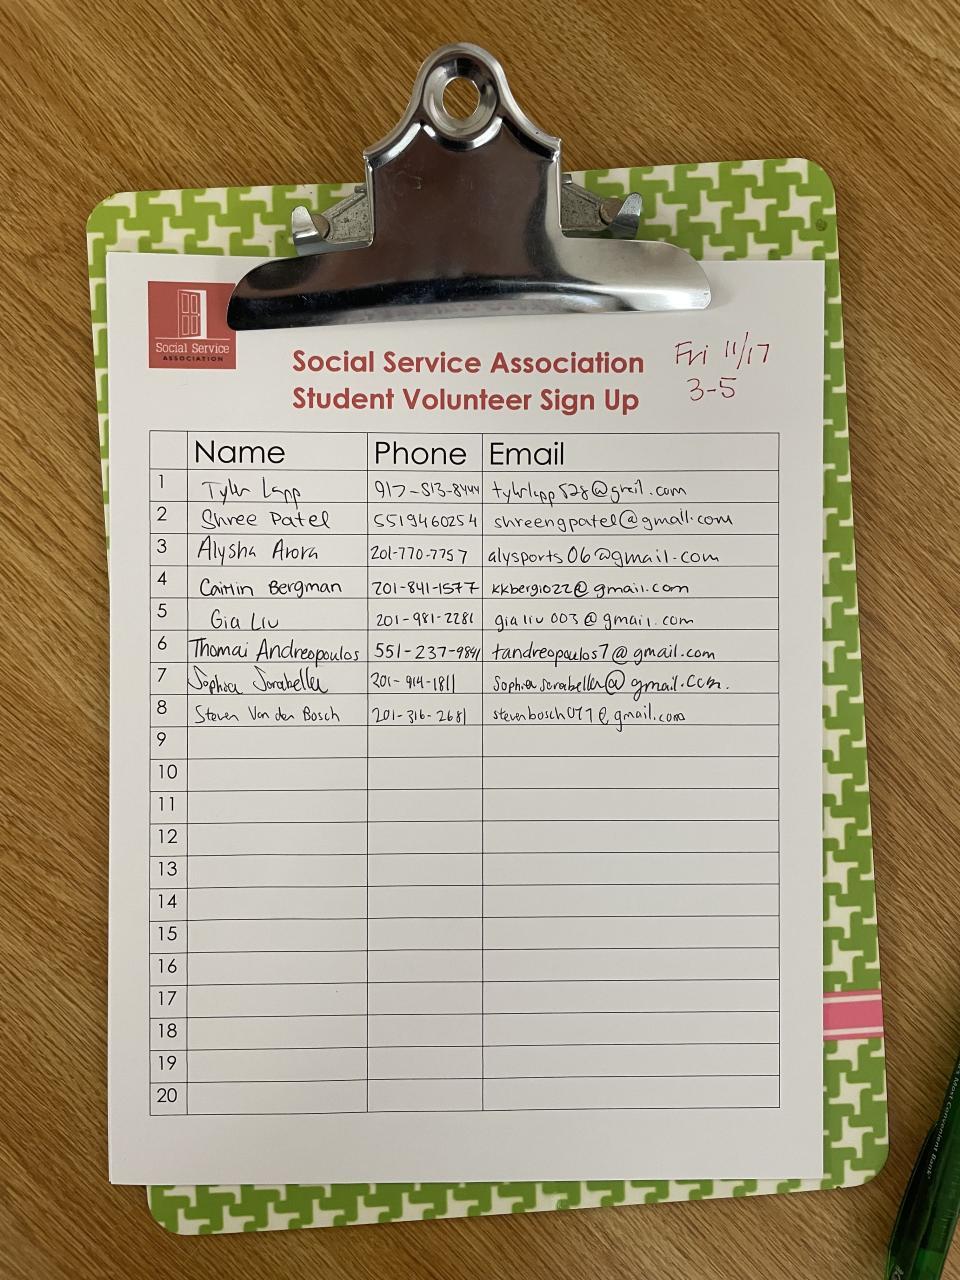 Social Service
ASSOCIATION
Social Service Association
Student Volunteer Sign Up
Fri 11/17
3-5
Name Phone Email
1 Tyler Lapp 917-513-8444 tylerlapp528@gmail.com
2 Shree Patel 5519460254 shreengpatel@gmail.com
3 Alysha Arora 201-770-7757 alysports06@gmail.com
4 Caitlin Bergman 201-841-1577 kkbergio22@gmail.com
5 Gia Liu 201-981-2281 gialiu003@gmail.com
6 Thomai Andreopoulos 551-237-9841 tandreopoulos7@gmail.com
7 Sophia Sorabella 201-914-1811 sophiasorabella@gmail.com.
8 Steven Van den Bosch 201-316-2681 stevenbosch077@gmail.com
9
10
11
12
13
14
15
16
17
18
19
20
Most Convenient Bank